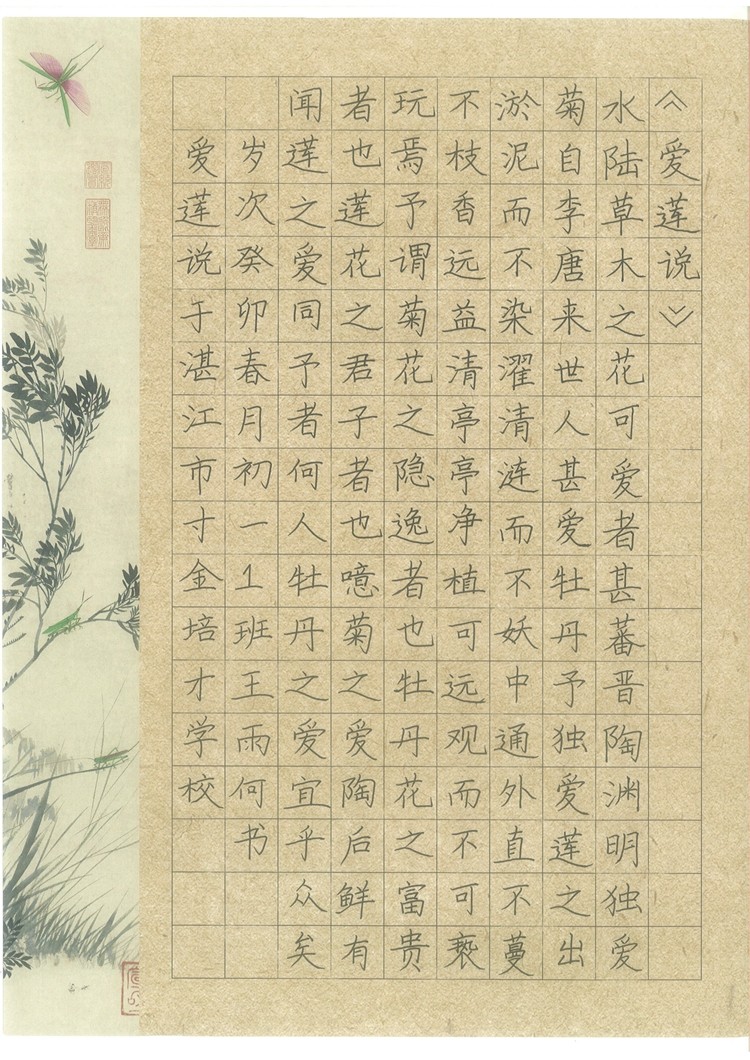 《爱莲说》
水陆草木之花可爱者甚蕃晋陶渊明独爱
菊自李唐来世人甚爱牡丹予独爱莲之出
淤泥而不染濯清涟而不妖中通外直不蔓
不枝香远益清亭亭净植可远观而不可亵
玩焉予谓菊花之隐逸者也牡丹花之富贵
者也莲花之君子者也噫菊之爱陶后鲜有
闻莲之爱同予者何人牡丹之爱宜乎众矣
岁次癸卯春月初一1班王雨何书
爱莲说于湛江市寸金培才学校